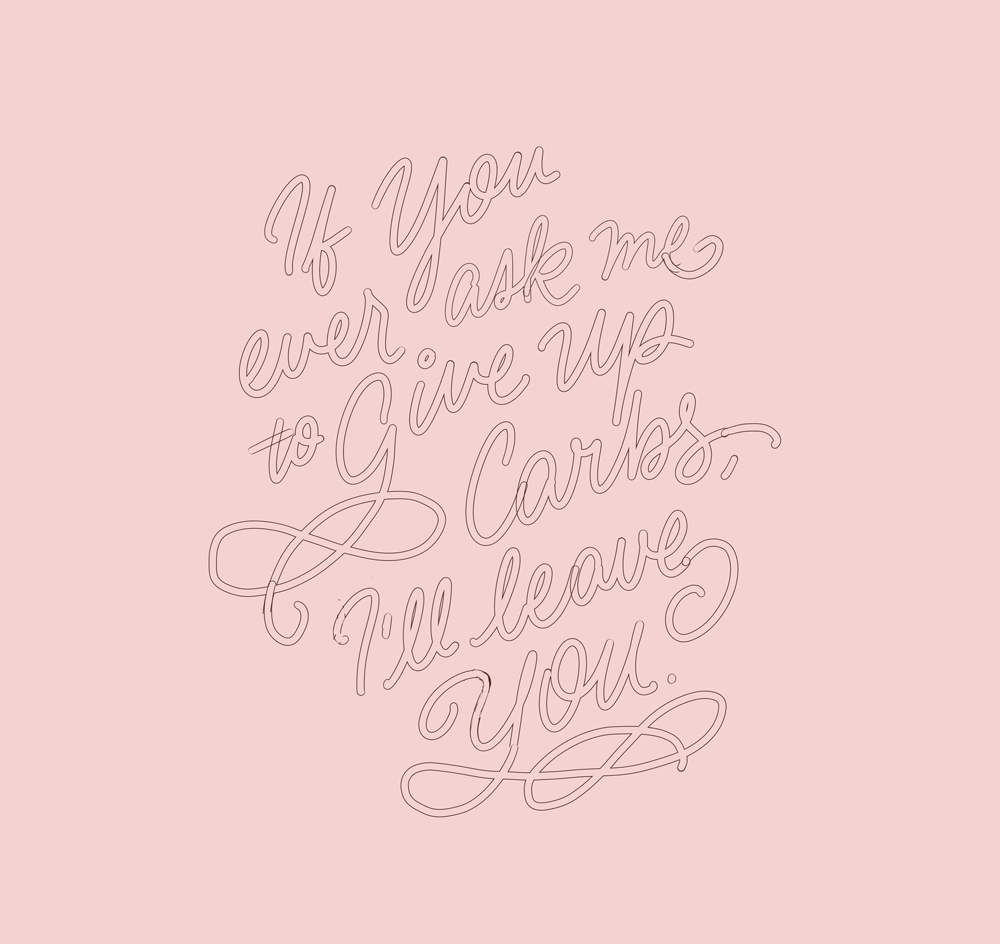 If You
ever ask me
to Give up
Carbs,
I'll leave
You.